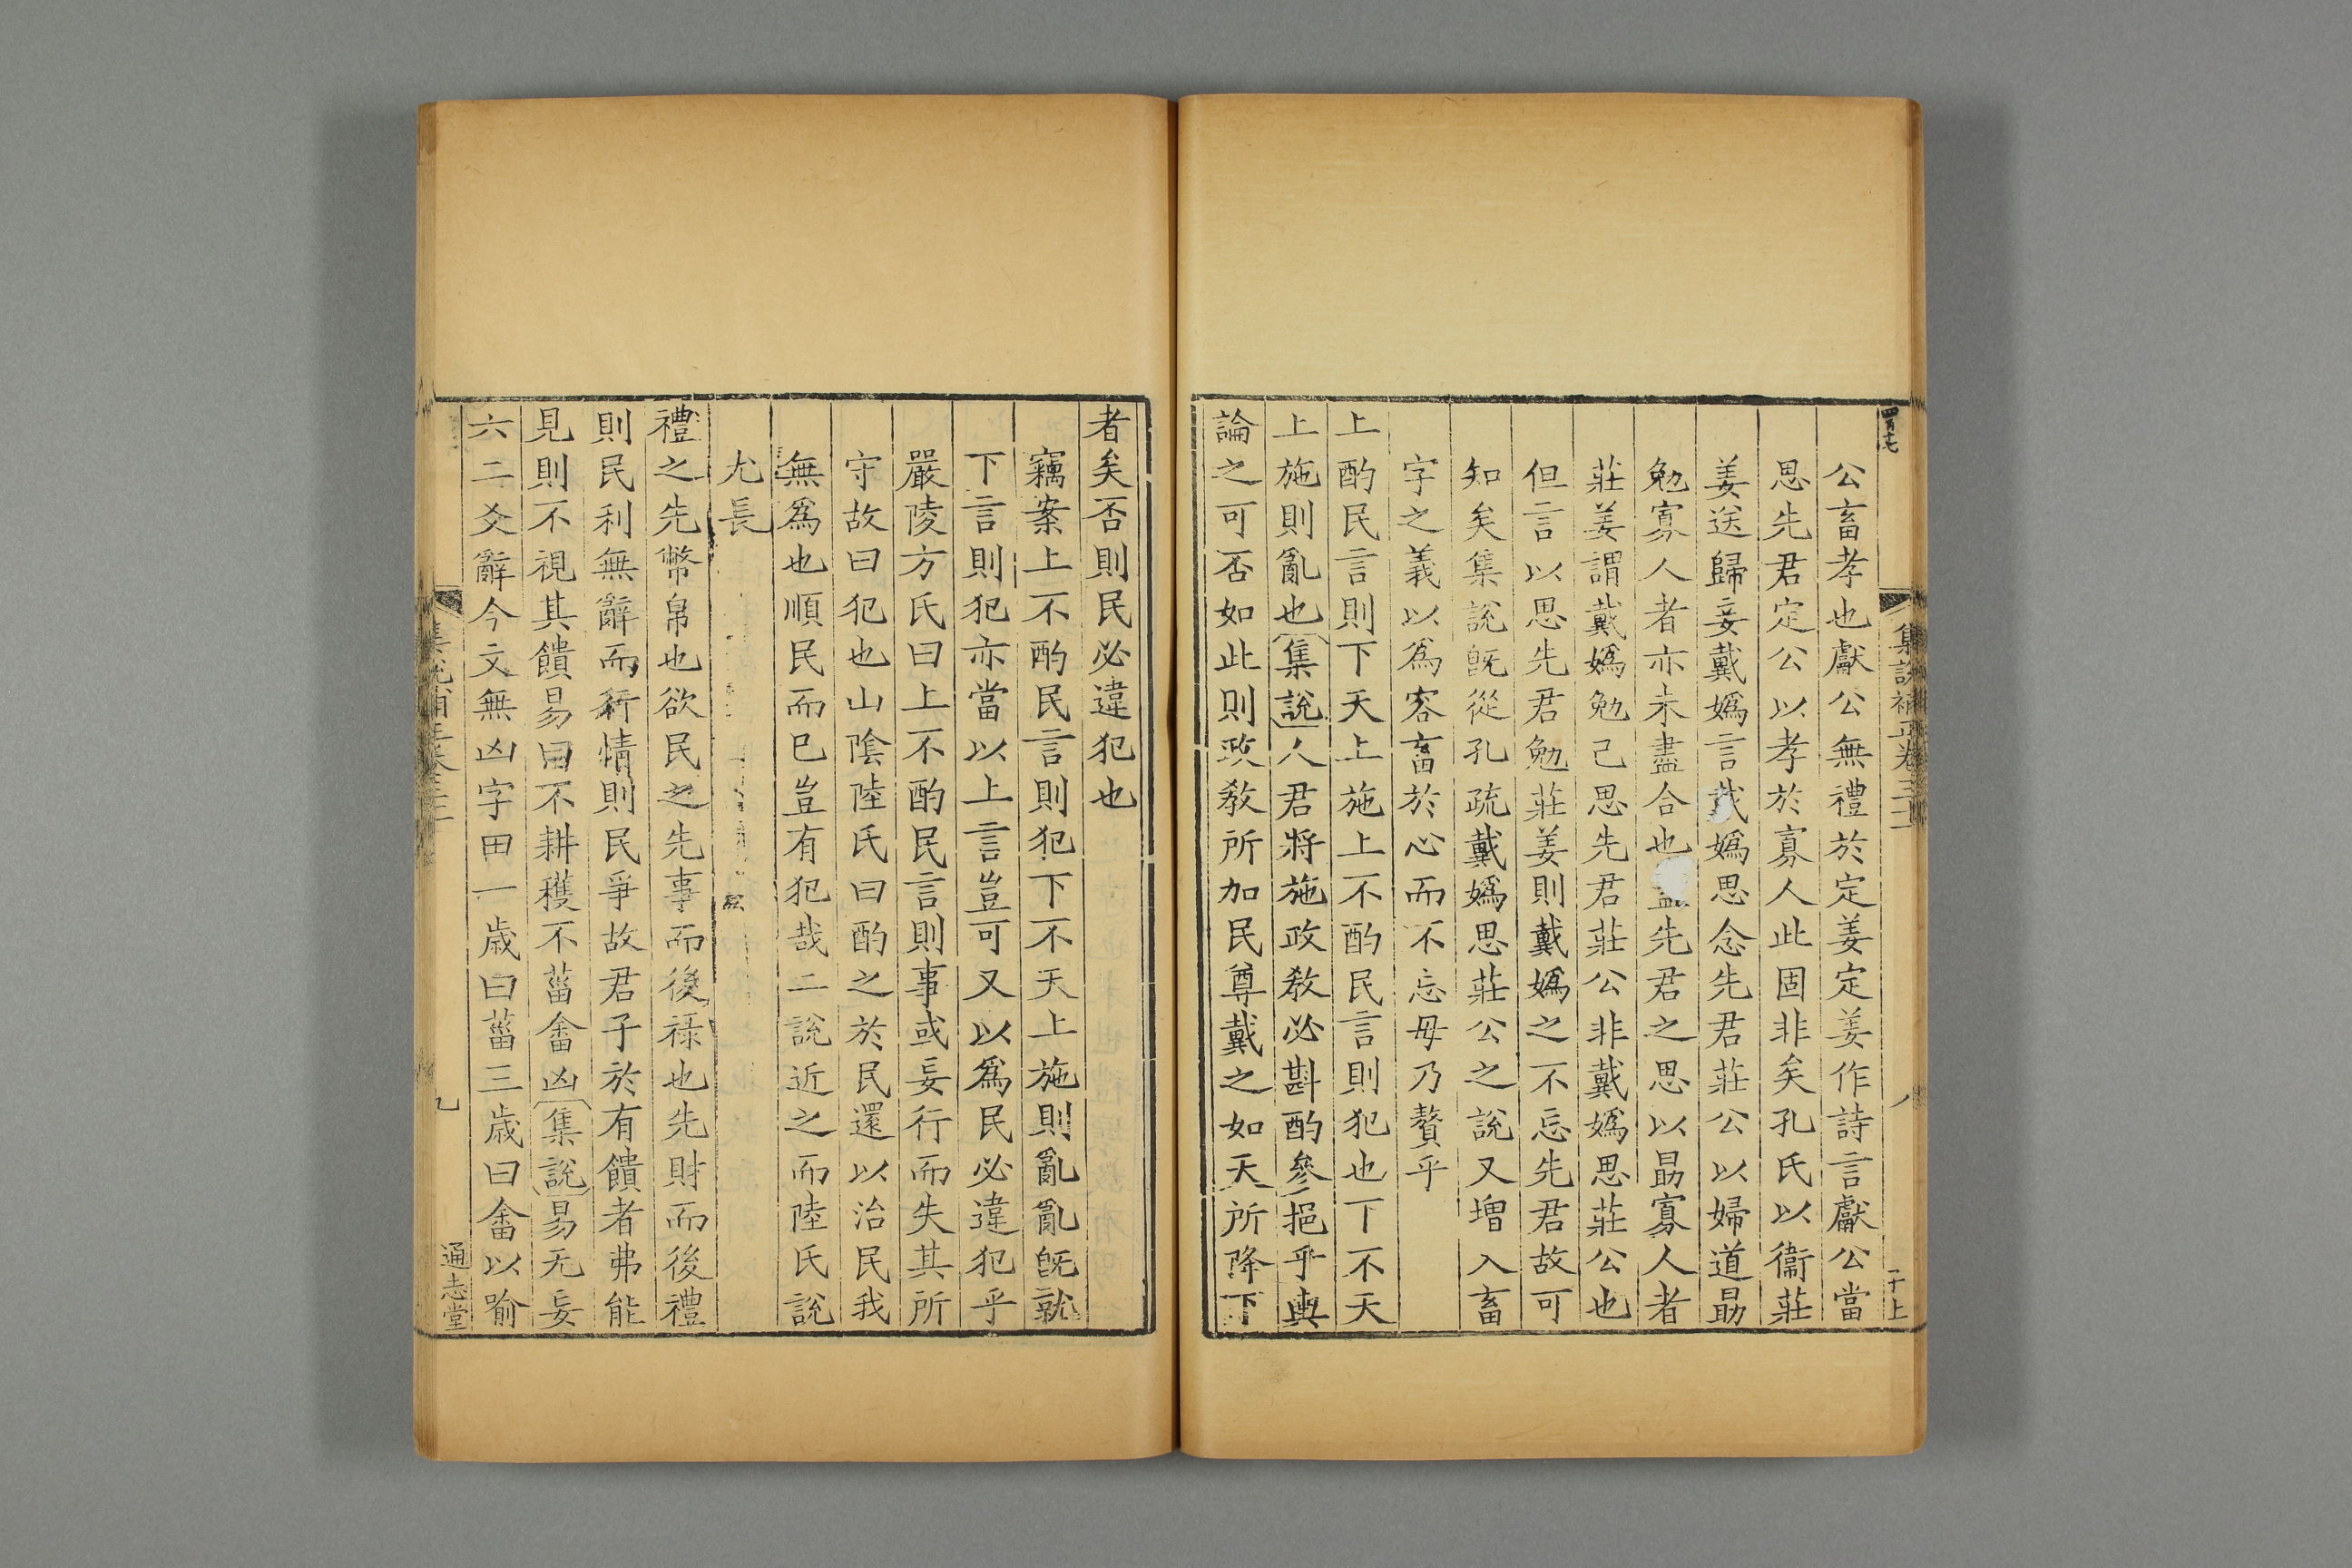 集說補正卷三十二
公畜孝也獻公無禮於定姜定姜作詩言獻公當
思先君定公以孝於寡人此固非矣孔氏以衞莊
姜送歸妾戴嬀言戴嬀思念先君莊公以婦道勗
勉寡人者亦未盡合也先君之思以勗寡人者
莊姜謂戴嬀勉己思先君莊公非戴嬀思莊公也
但言以思先君勉莊姜則戴嬀之不忘先君故可
知矣集說旣從孔疏戴嬀思莊公之說又增入畜
字之義以爲容畜於心而不忘毋乃贅乎
上酌民言則下天上施上不酌民言則犯也下不天
上施則亂也集說人君將施政敎必斟酌參挹乎輿
論之可否如此則政敎所加民尊戴之如天所降下
者矣否則民必違犯也
竊案上不酌民言則犯下不天上施則亂亂旣就
下言則犯亦當以上言豈可又以爲民必違犯乎
嚴陵方氏曰上不酌民言則事或妄行而失其所
守故曰犯也山陰陸氏曰酌之於民還以治民我
無爲也順民而已豈有犯哉二說近之而陸氏說
尤長
禮之先幣帛也欲民之先事而後祿也先財而後禮
則民利無辭而行情則民爭故君子於有饋者弗能
見則不視其饋易曰不耕穫不菑畬凶集說易无妄
六二爻辭今文無凶字田一歲曰菑三歲曰畬以喻
通志堂